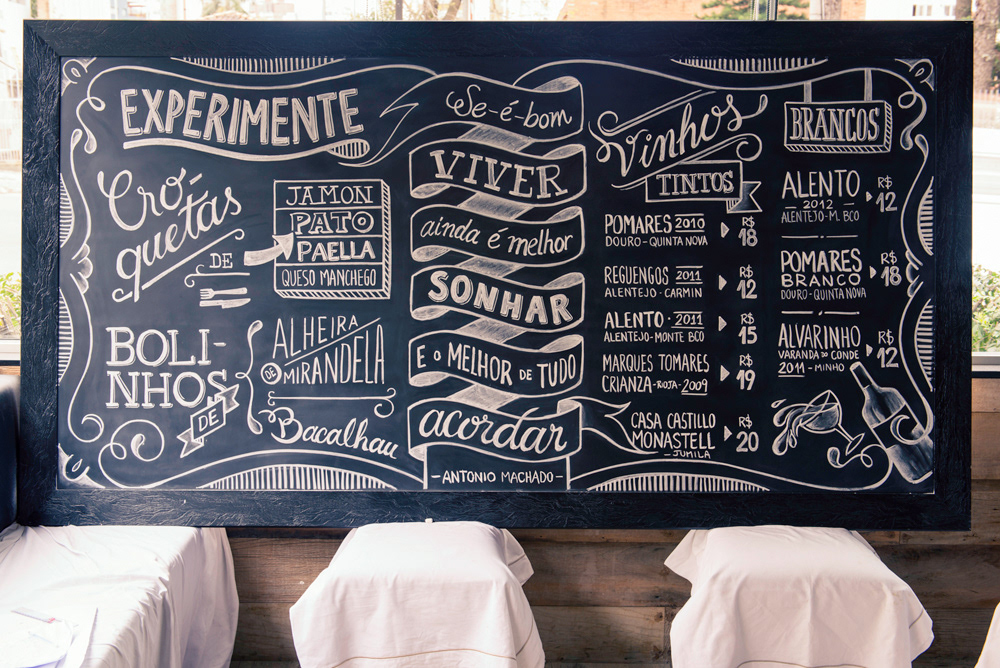 EXPERIMENTE
Cró-
quetas
DE
JAMON
PATO
PAELLA
QUESO MANCHEGO
BOLI-
NHOS
DE
ALHEIRA
DE MIRANDELA
Bacalhau
Se é bom
VIVER
ainda é melhor
SONHAR
E O MELHOR DE TUDO
acordar
- ANTONIO MACHADO -
Vinhos
TINTOS
POMARES 2010
DOURO - QUINTA NOVA
R$
18
REGUENGOS 2011
ALENTEJO - CARMIN
R$
12
ALENTO · 2011
ALENTEJO - MONTE BCO
R$
15
MARQUES TOMARES
CRIANZA - RIOJA - 2009
R$
19
CASA CASTILLO
MONASTELL
- JUMILA
R$
20
BRANCOS
ALENTO
- 2012 -
ALENTEJO - M. BCO
R$
12
POMARES
BRANCO
DOURO - QUINTA NOVA
R$
18
ALVARINHO
VARANDA DO CONDE
2011 - MINHO
R$
12